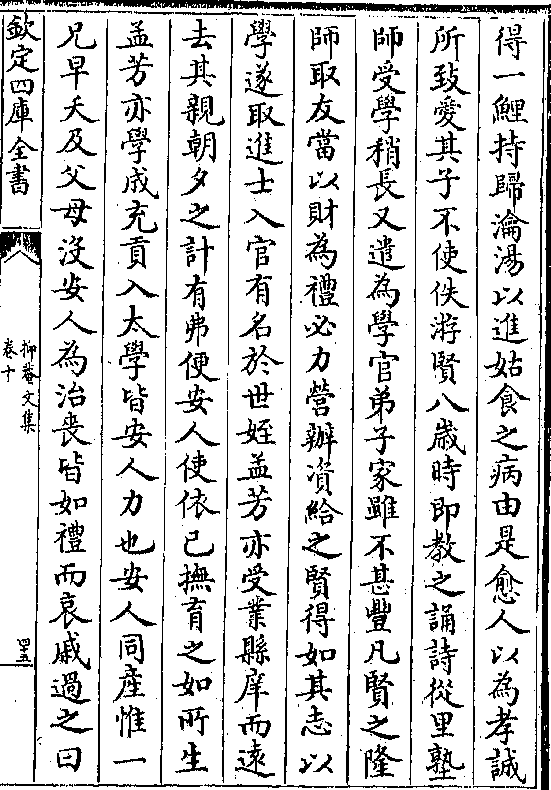 得一鯉持歸瀹湯以進姑食之病由是愈人以為孝誠
所致愛其子不使佚游賢八歲時即教之誦詩從里塾
師受學稍長又遣為學官弟子家雖不甚豐凡賢之隆
師取友當以財為禮必力營辦資給之賢得如其志以
學遂取進士入官有名於世姪孟芳亦受業縣庠而遠
去其親朝夕之計有弗便安人使依已撫育之如所生
孟芳亦學成充貢入太學皆安人力也安人同產惟一
兄早夭及父母沒安人為治喪皆如禮而哀戚過之曰
欽定四庫全書
抑菴文集
卷十
四五